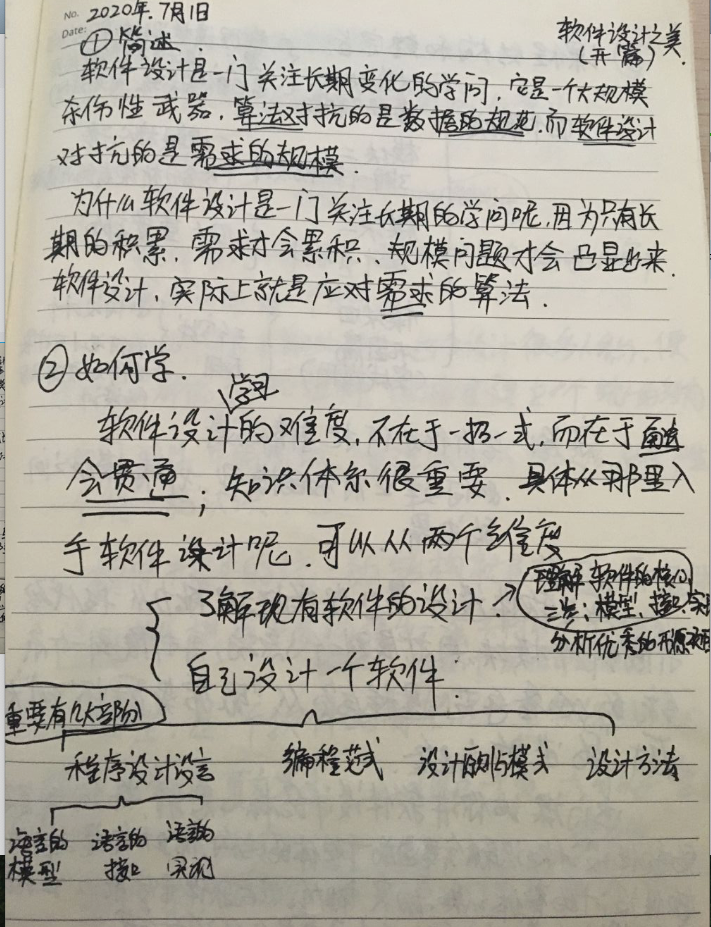 No. 2020年.7月1日
Date:
软件设计之美
(开篇)
① 简述.
软件设计是一门关注长期变化的学问,它是一个大规模
杀伤性武器,算法对抗的是数据的规模,而软件设计
对抗的是需求的规模.
为什么软件设计是一门关注长期的学问呢,因为只有长
期的积累,需求才会累积、规模问题才会凸显出来.
软件设计,实际上就是应对需求的算法.
② 如何学.
学习
软件设计的难度,不在于一招一式,而在于融
会贯通;知识体系很重要.具体从那里入
手软件设计呢.可以从两个维度
了解现有软件的设计.
理解软件的核心
三点:模型、接口、实现
分析优秀的开源项目
自己设计一个软件.
重要有几大部分
程序设计语言 编程范式 设计原则与模式 设计方法
语言的 语言的 语言的
模型 接口 实现